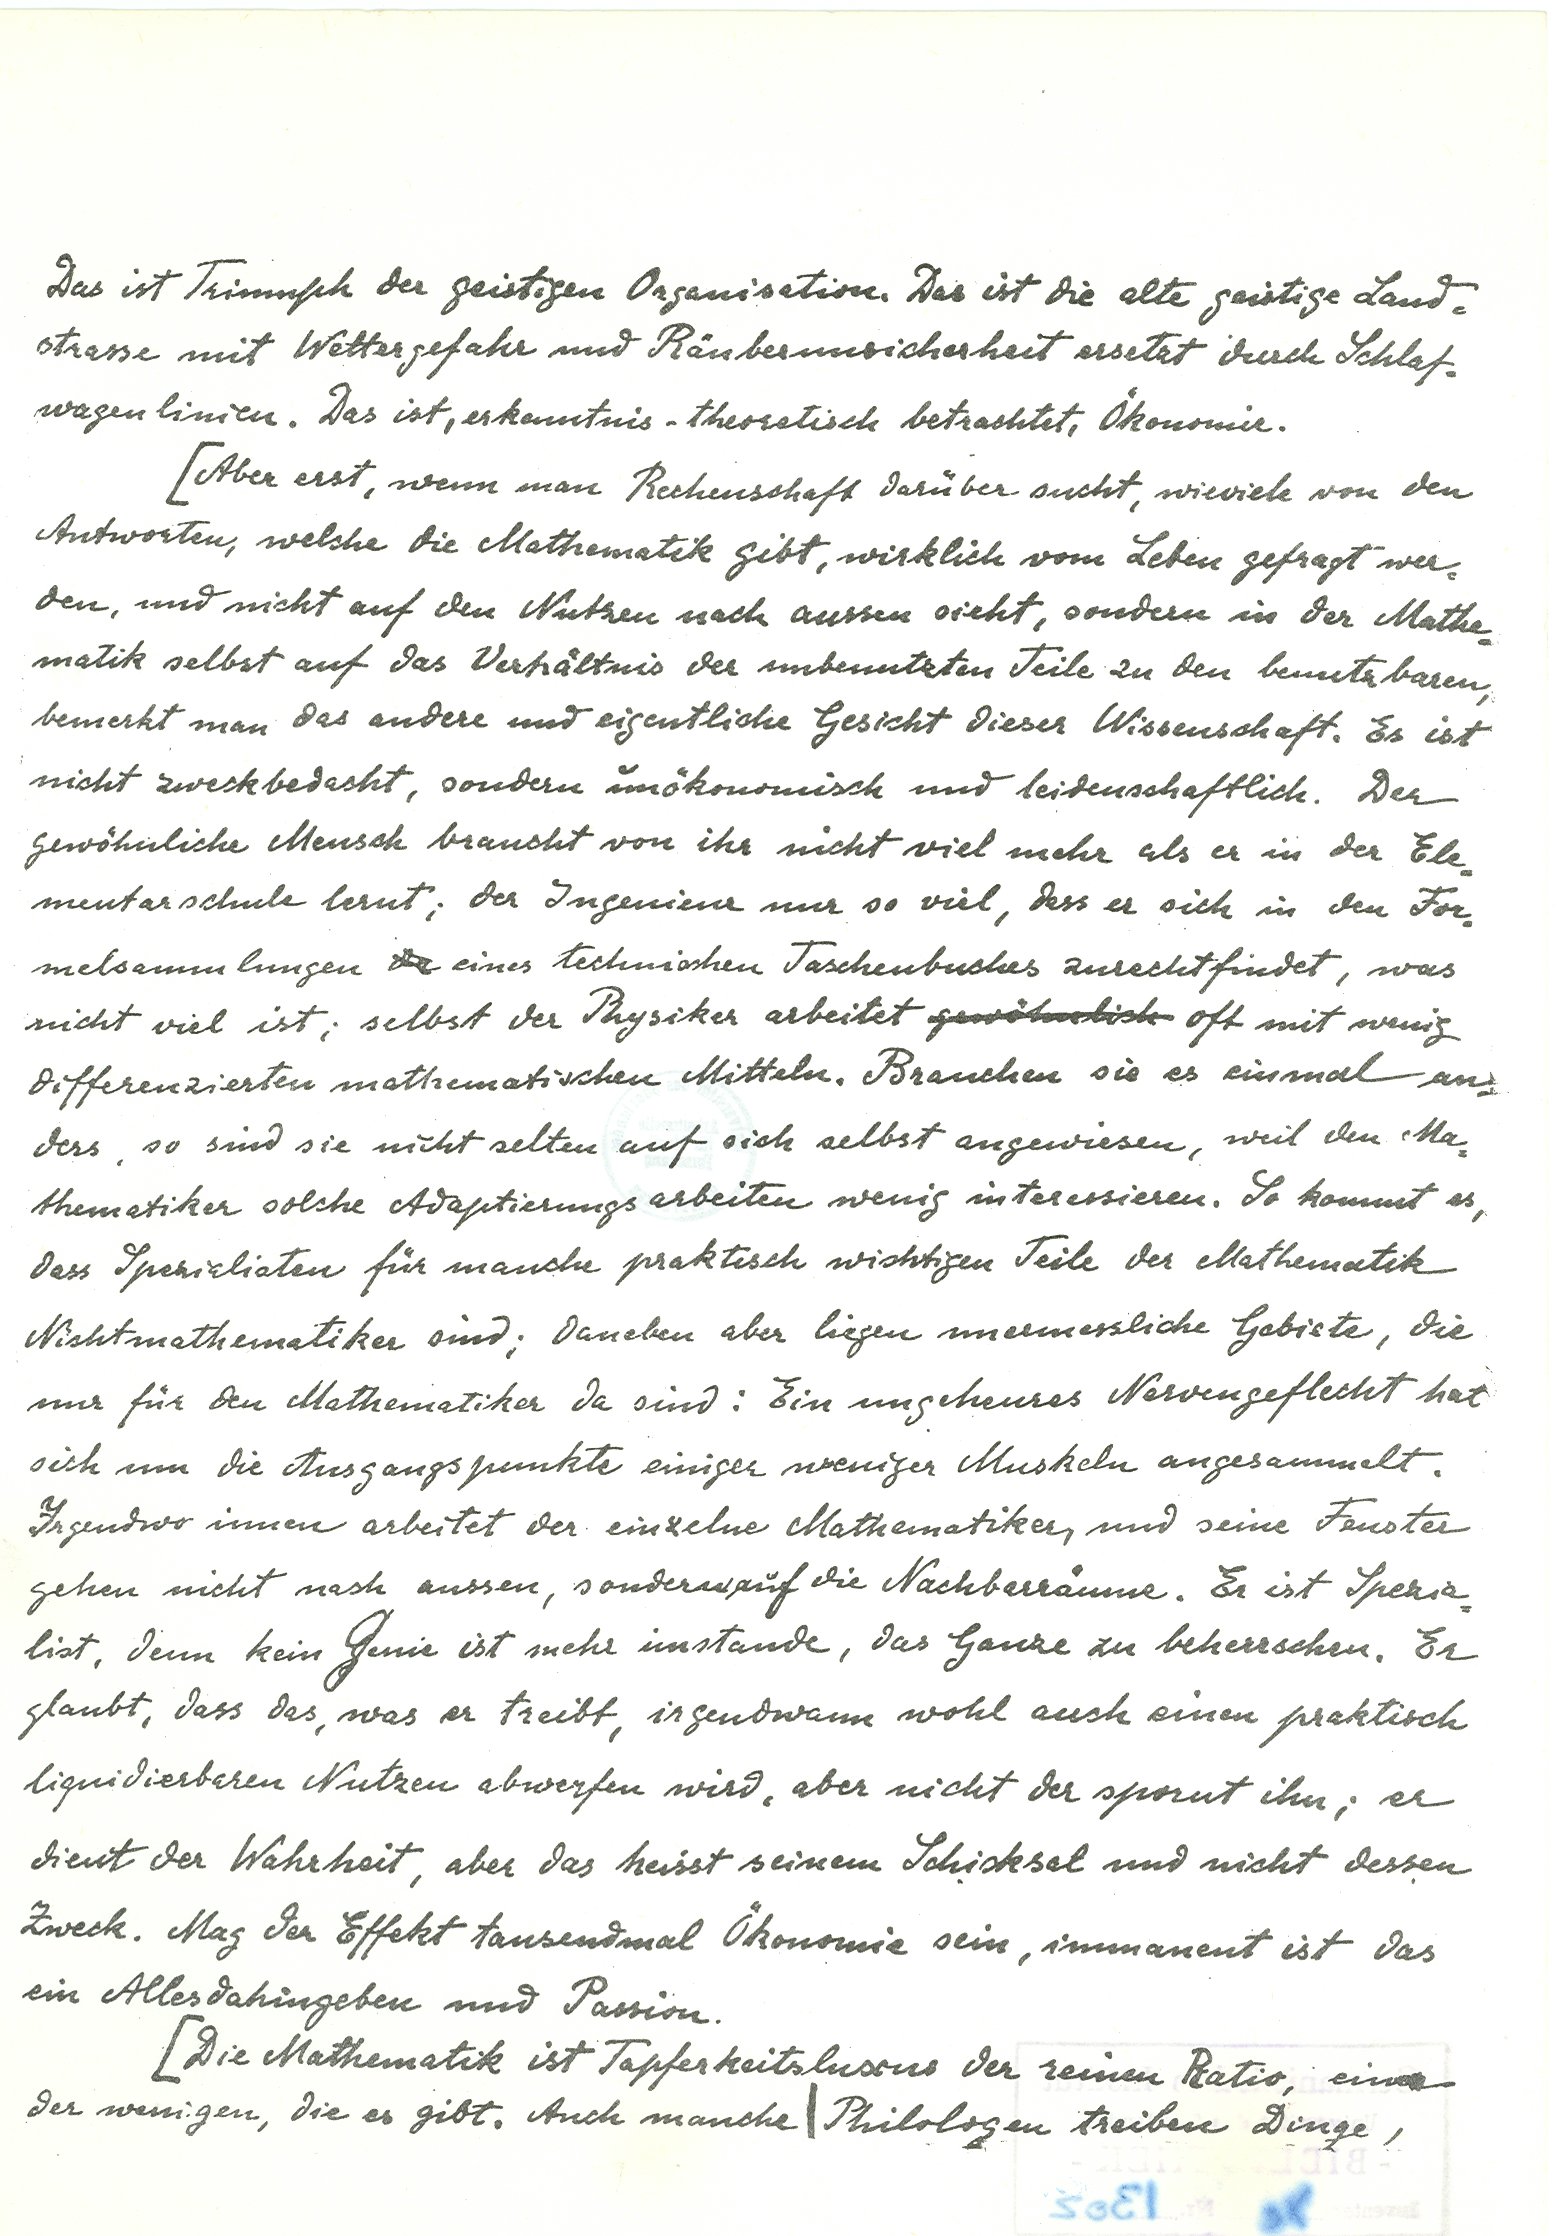 Das ist Triumph der geistigen Organisation. Das ist die alte geistige Land-
strasse mit Wettergefahr und Räuberunsicherheit ersetzt durch Schlaf-
wagenlinien. Das ist, erkenntnis-theoretisch betrachtet, Ökonomie.
[Aber erst, wenn man Rechenschaft darüber sucht, wieviele von den
Antworten, welche die Mathematik gibt, wirklich vom Leben gefragt wer-
den, und nicht auf den Nutzen nach aussen sieht, sondern in der Mathe-
matik selbst auf das Verhältnis der unbenutzten Teile zu den benutzbaren,
bemerkt man das andere und eigentliche Gesicht dieser Wissenschaft. Es ist
nicht zweckbedacht, sondern unökonomisch und leidenschaftlich. Der
gewöhnliche Mensch braucht von ihr nicht viel mehr als er in der Ele-
mentarschule lernt; der Ingenieur nur so viel, dass er sich in den For-
melsammlungen de eines technischen Taschenbuches zurechtfindet, was
nicht viel ist; selbst der Physiker arbeitet gewöhnlich oft mit wenig
differenzierten mathematischen Mitteln. Brauchen sie es einmal an-
ders, so sind sie nicht selten auf sich selbst angewiesen, weil den Ma-
thematiker solche Adaptierungsarbeiten wenig interessieren. So kommt es,
dass Spezialisten für manche praktisch wichtigen Teile der Mathematik
Nichtmathematiker sind; daneben aber liegen unermessliche Gebiete, die
nur für den Mathematiker da sind: Ein ungeheures Nervengeflecht hat
sich um die Ausgangspunkte einiger weniger Muskeln angesammelt.
Irgendwo innen arbeitet der einzelne Mathematiker, und seine Fenster
gehen nicht nach aussen, sondern auf die Nachbarräume. Er ist Spezia-
list, denn kein Genie ist mehr imstande, das Ganze zu beherrschen. Er
glaubt, dass das, was er treibt, irgendwann wohl auch einen praktisch
liquidierbaren Nutzen abwerfen wird, aber nicht der spornt ihn; er
dient der Wahrheit, aber das heisst seinem Schicksal und nicht dessen
Zweck. Mag der Effekt tausendmal Ökonomie sein, immanent ist das
ein Allesdahingeben und Passion.
[Die Mathematik ist Tapferkeitsluxus der reinen Ratio, einer
der wenigen, die es gibt. Auch manche | Philologen treiben Dinge,
1302